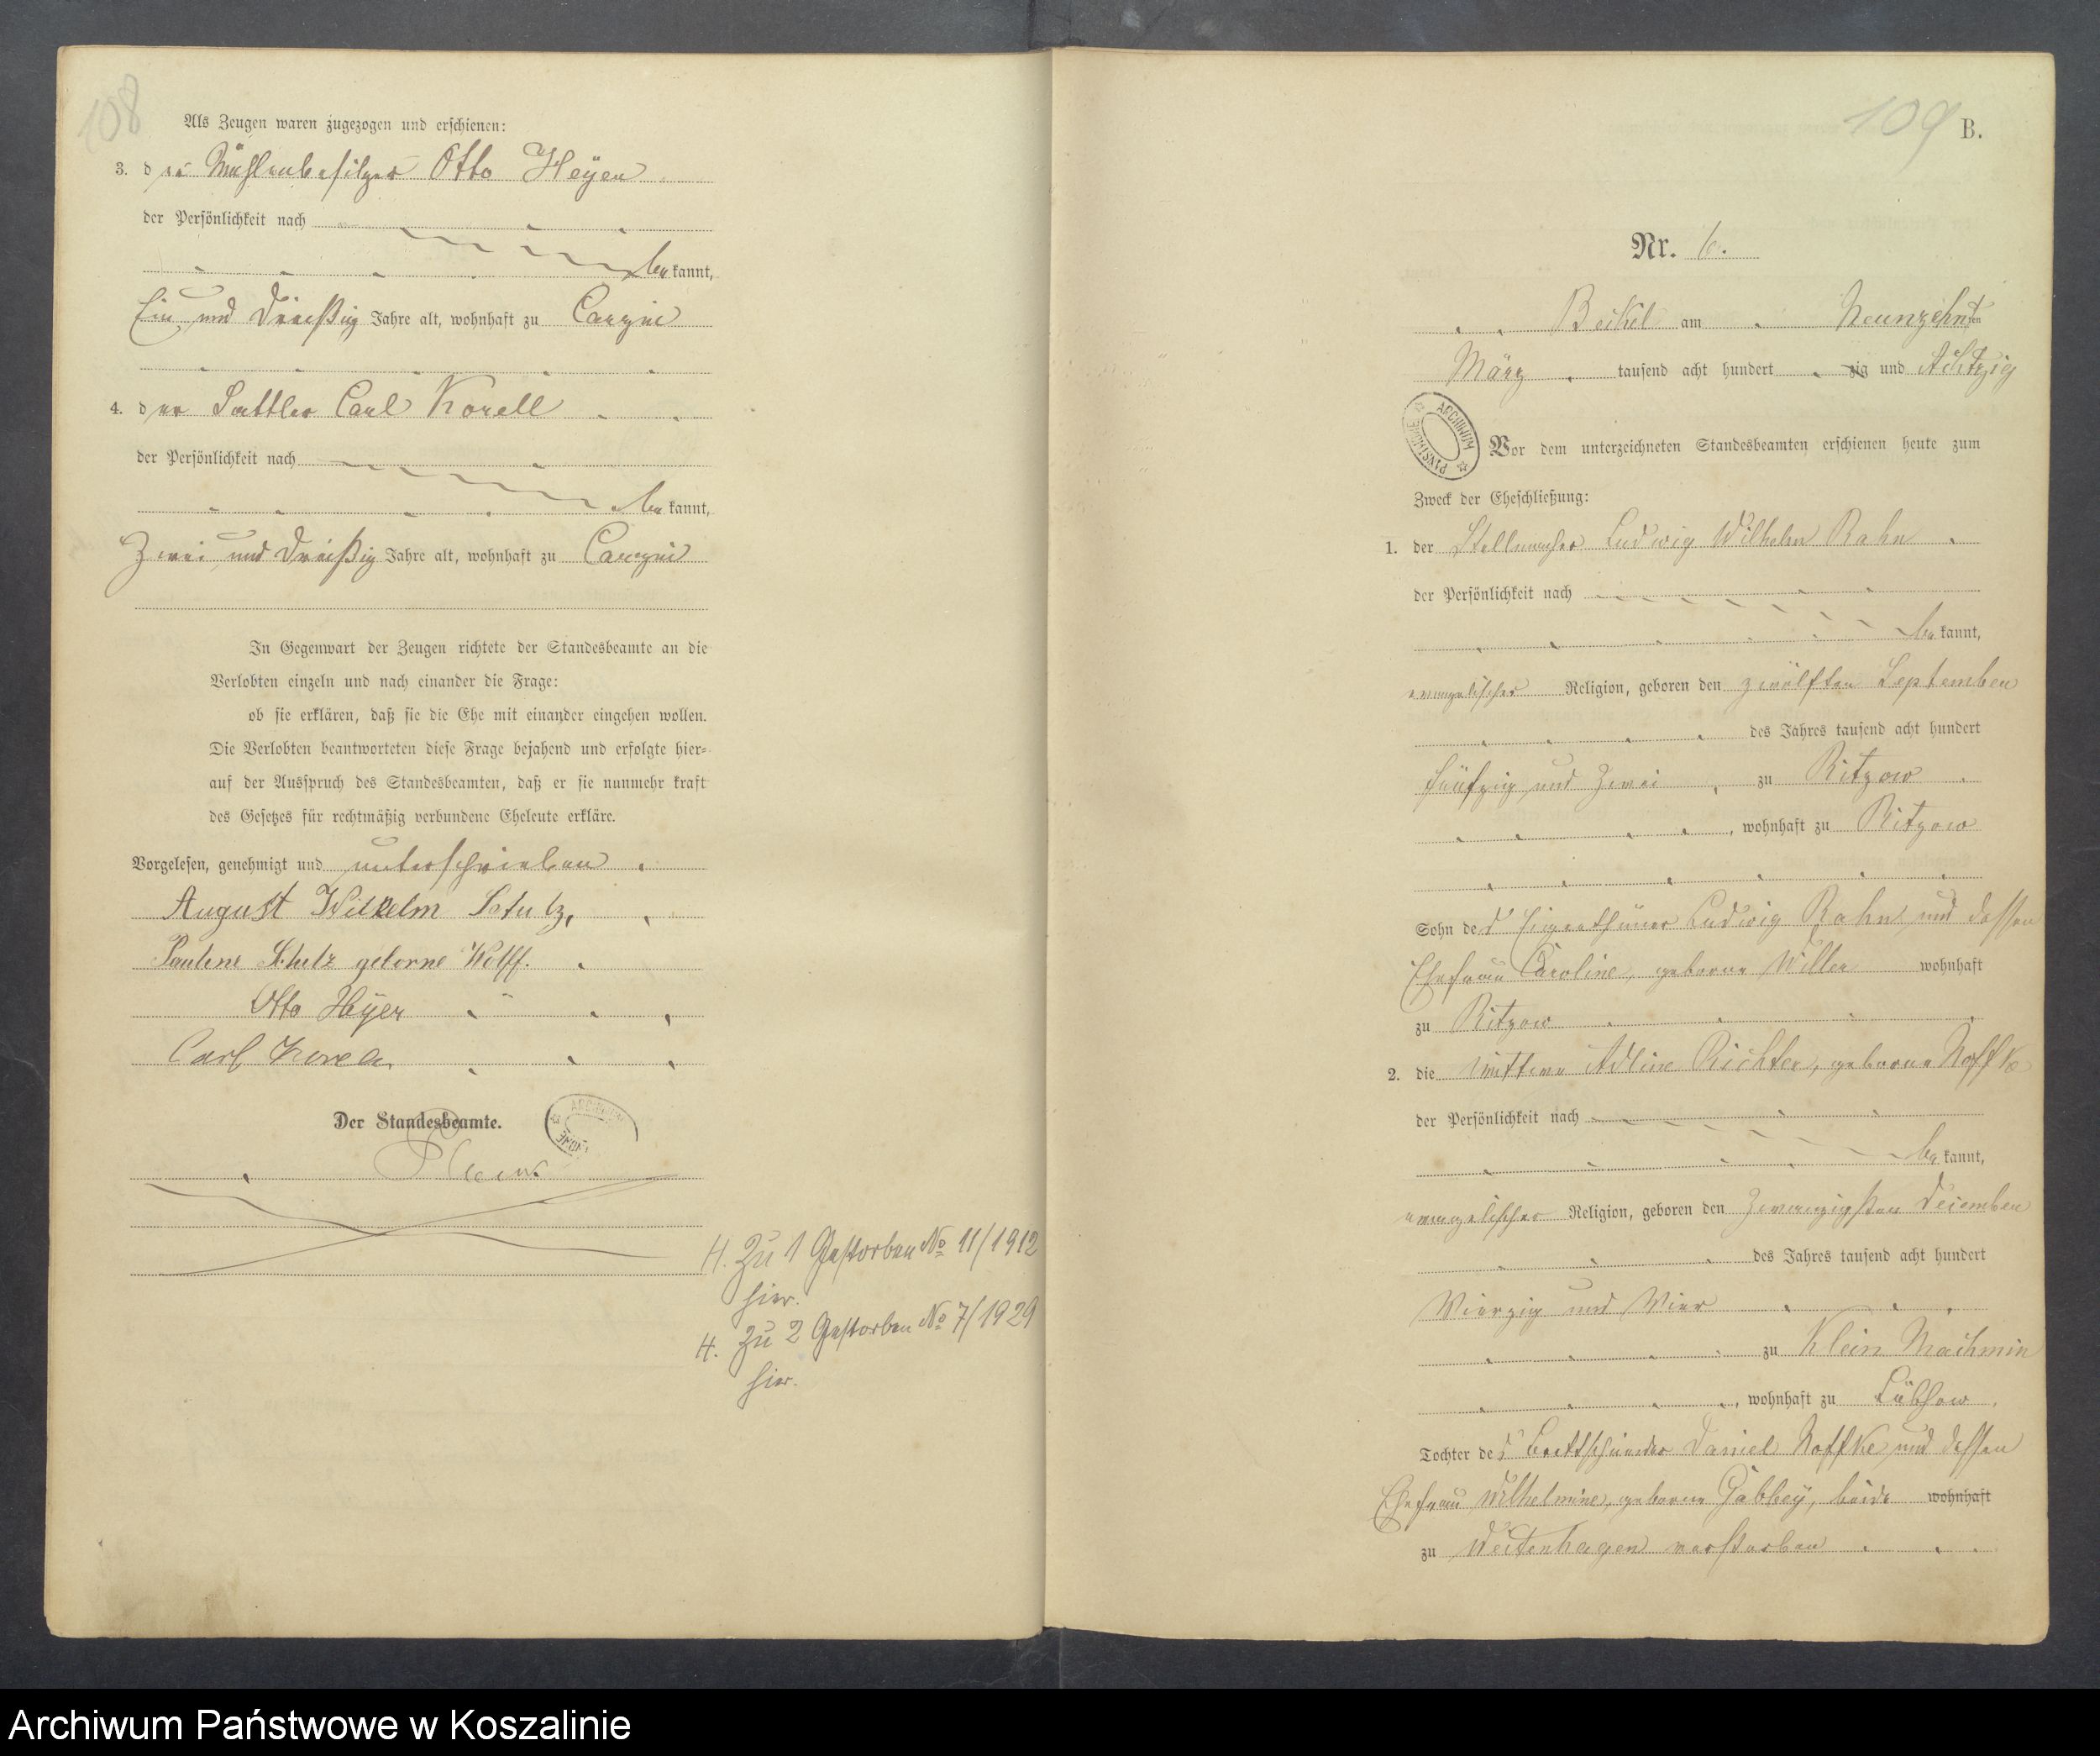 108
Als Zeugen waren zugezogen und erschienen:
3. der Mühlenbesitzer Otto Heyer
der Persönlichkeit nach
bekannt,
Ein und Dreißig Jahre alt, wohnhaft zu
4. der Sattler Carl Korell
der Persönlichkeit nach
bekannt,
Zwei und Dreißig Jahre alt, wohnhaft zu
In Gegenwart der Zeugen richtete der Standesbeamte an die
Verlobten einzeln und nach einander die Frage:
ob sie erklären, daß sie die Ehe mit einander eingehen wollen.
Die Verlobten beantworteten diese Frage bejahend und erfolgte hier-
auf der Ausspruch des Standesbeamten, daß er sie nunmehr kraft
des Gesetzes für rechtmäßig verbundene Eheleute erkläre.
Vorgelesen, genehmigt und unterschrieben
August Wilhelm
geborne Wolff.
Otto Heyer
Carl
Der Standesbeamte.
H. Zu 1 Gestorben No 11/1912
hier.
H. Zu 2 Gestorben No 7/1929
hier.
109 B.
Nr. 6.
Beckel am Neunzehnten
März tausend acht hundert zig und Achtzig
ARCHIWUM PAŃSTWOWE
Vor dem unterzeichneten Standesbeamten erschienen heute zum
Zweck der Eheschließung:
1. der Stellmacher Ludwig Wilhelm Rahn
der Persönlichkeit nach
bekannt,
evangelischer Religion, geboren den zwölften September
des Jahres tausend acht hundert
fünfzig und Zwei, zu Ritzow
, wohnhaft zu Ritzow
Sohn des Eigenthümer Ludwig Rahn und dessen
Ehefrau Caroline, geborne Willer wohnhaft
zu Ritzow
2. die Wittwe Adline Richter, geborne Noffke
der Persönlichkeit nach
bekannt,
evangelischer Religion, geboren den Zwanzigsten December
des Jahres tausend acht hundert
Vierzig und Vier
zu Klein Machmin
, wohnhaft zu Lübzow,
Tochter des Brettschneider Daniel Noffke und dessen
Ehefrau Wilhelmine, geborne Gabbey, beide wohnhaft
zu Weitenhagen verstorben
Archiwum Państwowe w Koszalinie